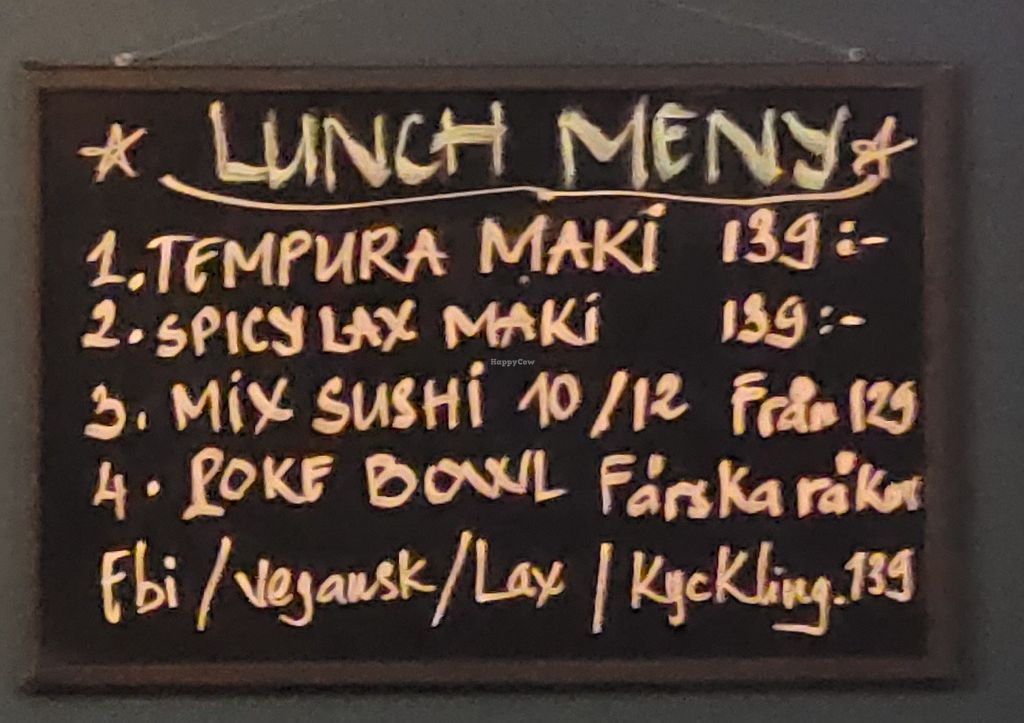 ☆ LUNCH MENY ☆
1. TEMPURA MAKi 139:-
2. SPICY LAX MAKi 139:-
HappyCow
3. MiX SUSHi 10/12 Från 129
4. POKE BOWL Fårska råkor
Ebi/Vegansk/Lax/Kyckling. 139